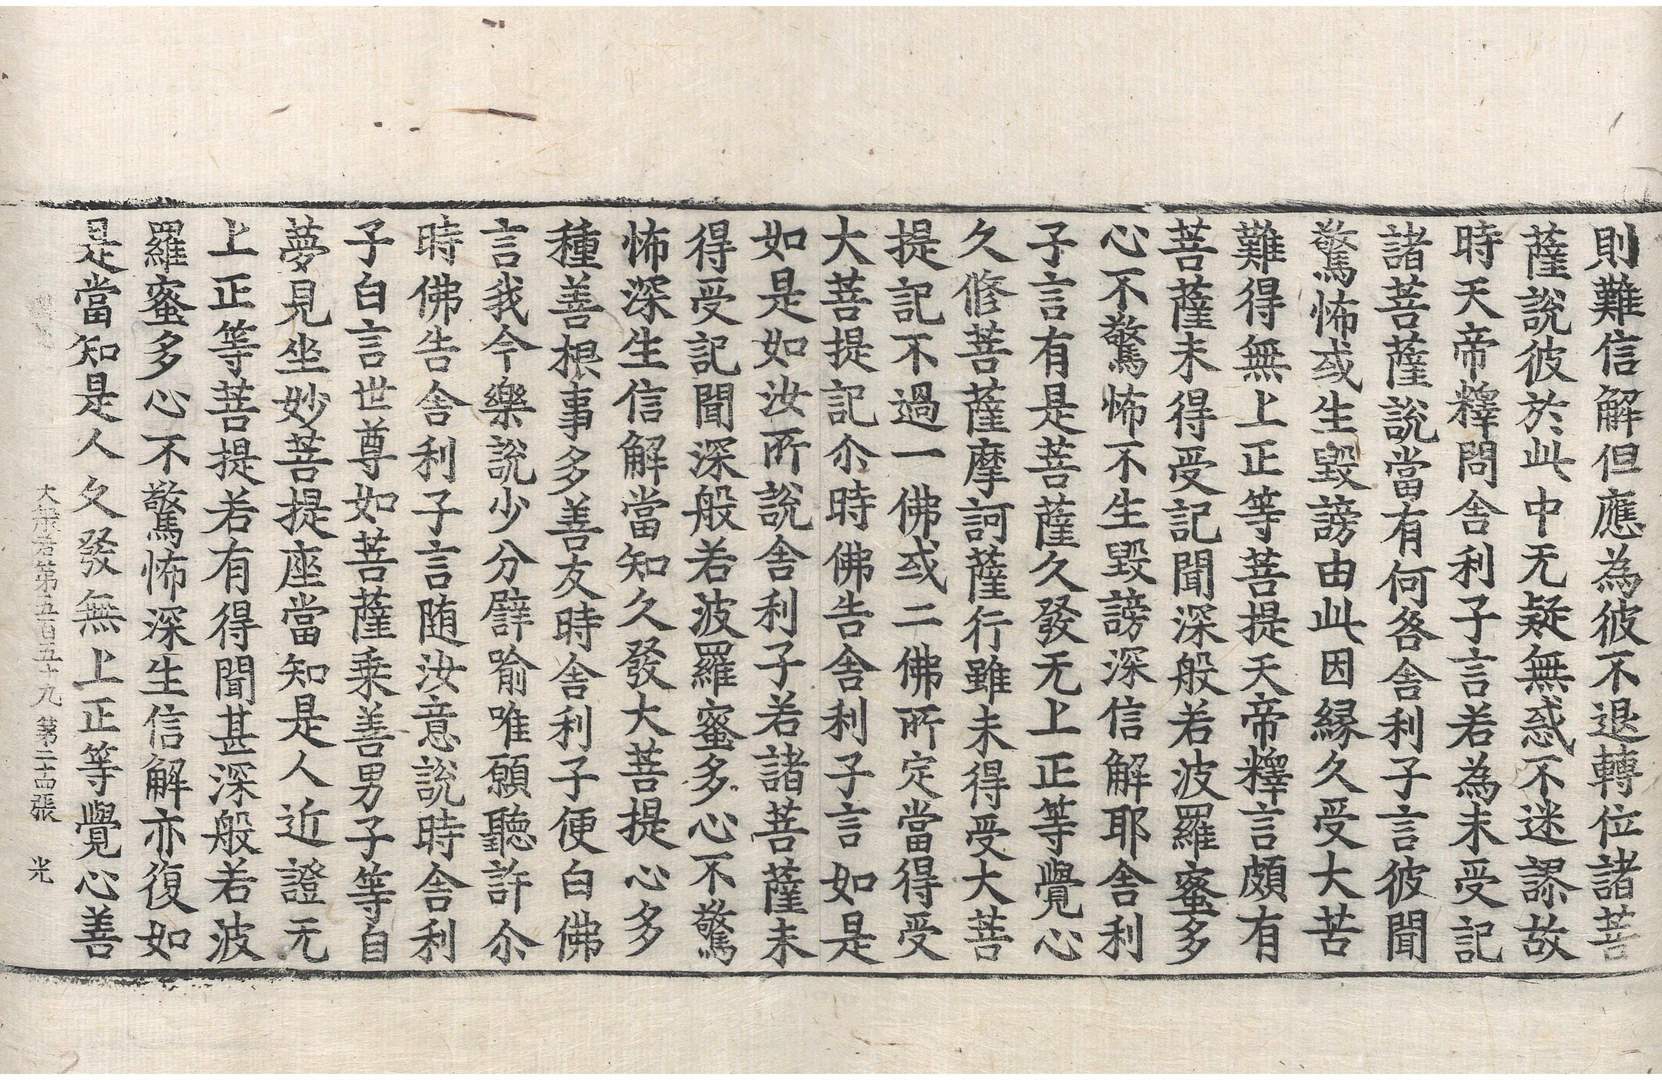 則難信解但應為彼不退轉位諸菩
薩說彼於此中无疑無惑不迷謬故
時天帝釋問舍利子言若為未受記
諸菩薩說當有何咎舍利子言彼聞
驚怖或生毀謗由此因緣久受大苦
難得無上正等菩提天帝釋言頗有
菩薩未得受記聞深般若波羅蜜多
心不驚怖不生毀謗深信解耶舍利
子言有是菩薩久發无上正等覺心
久修菩薩摩訶薩行雖未得受大菩
提記不過一佛或二佛所定當得受
大菩提記尒時佛告舍利子言如是
如是如汝所說舍利子若諸菩薩未
得受記聞深般若波羅蜜多心不驚
怖深生信解當知久發大菩提心多
種善根事多善友時舍利子便白佛
言我今樂說少分譬喻唯願聽許尒
時佛告舍利子言随汝意說時舍利
子白言世尊如菩薩乘善男子等自
夢見坐妙菩提座當知是人近證无
上正等菩提若有得聞甚深般若波
羅蜜多心不驚怖深生信解亦復如
是當知是人久發無上正等覺心善
大般若第五百五十九 第二十四張 光